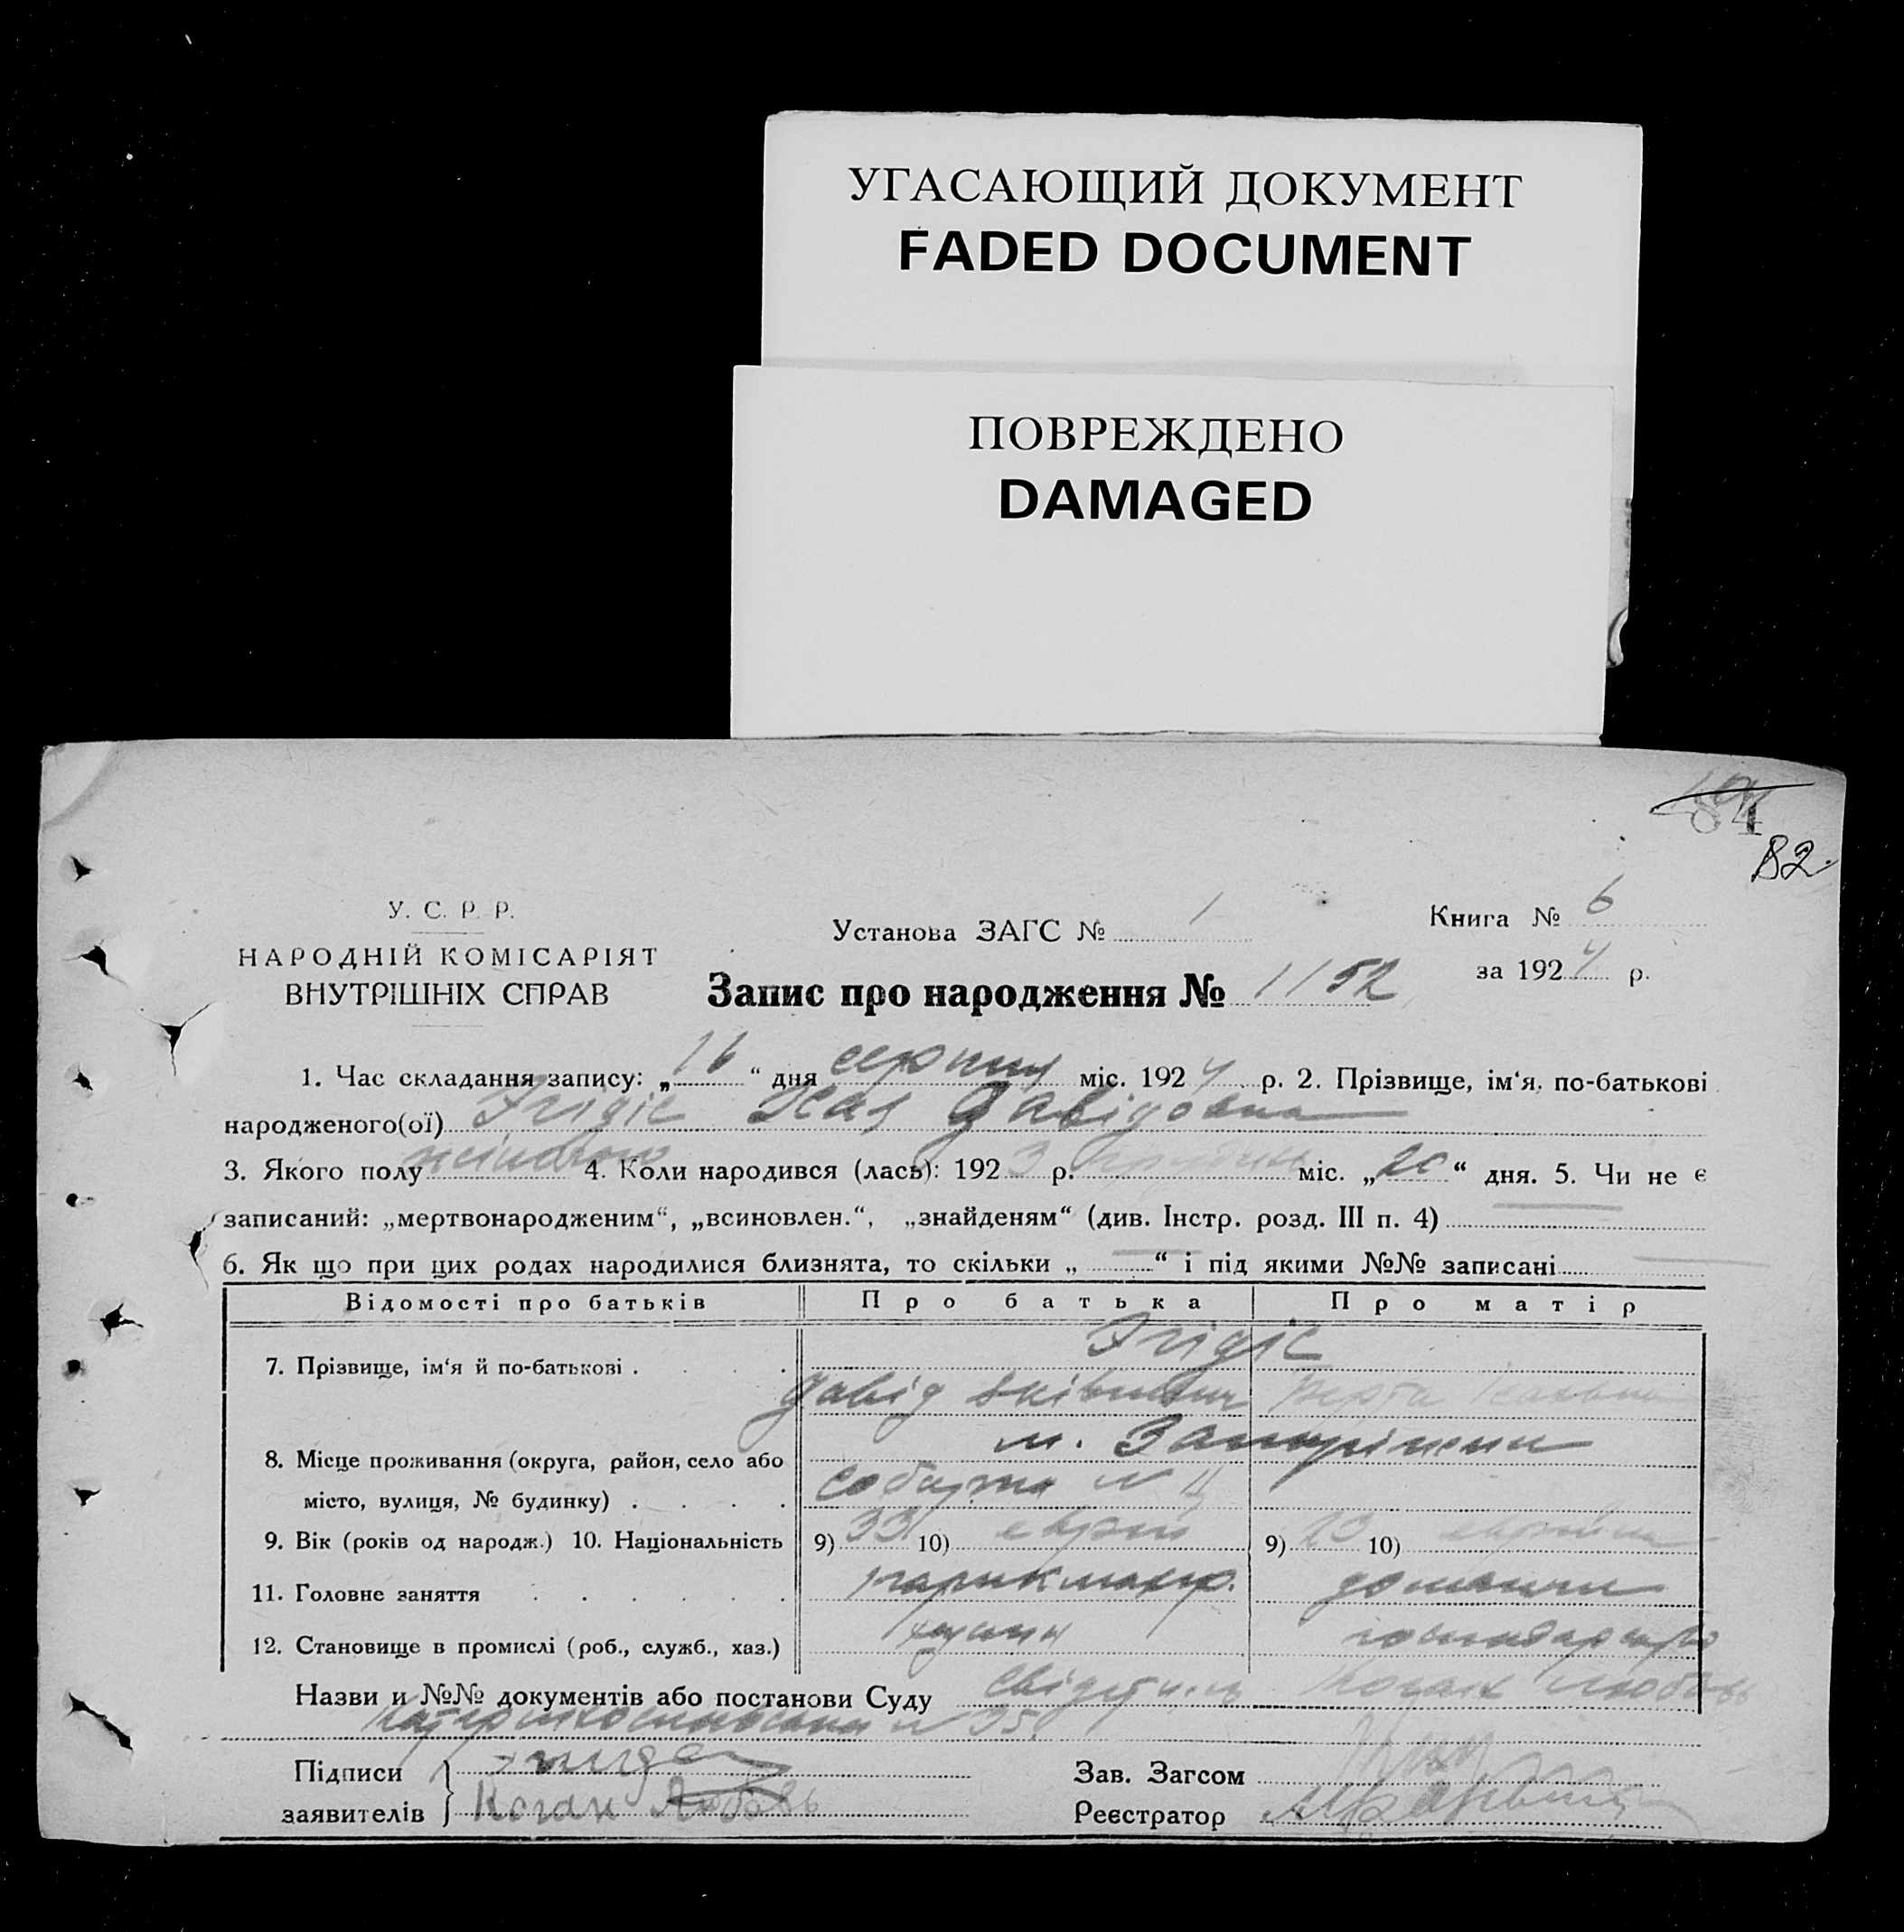 УГАСАЮЩИЙ ДОКУМЕНТ
FADED DOCUMENT
ПОВРЕЖДЕНО
DAMAGED
84
82
У. С. Р. Р.
НАРОДНІЙ КОМІСАРІЯТ
ВНУТРІШНІХ СПРАВ
Установа ЗАГС № 1
Книга № 6
за 1924 р.
Запис про народження № 1152
1. Час складання запису: „16“ дня серпня міс. 1924 р. 2. Прізвище, ім‘я, по-батькові
народженого(ої) Давідовна
3. Якого полу жіночого 4. Коли народився (лась): 1923 р. міс. „20“ дня. 5. Чи не є
записаний: „мертвонародженим“, „всиновлен.“, „знайденям“ (див. Інстр. розд. III п. 4)
6. Як що при цих родах народилися близнята, то скільки „ “ і під якими №№ записані
Відомості про батьків Про батька Про матір
7. Прізвище, ім‘я й по-батькові .
Давід Берта
м. Запоріжжя
8. Місце проживання (округа, район, село або
місто, вулиця, № будинку) . Соборна №
9. Вік (років од народж.) 10. Національність 9) 33 10) єврей 9) 23 10) єврейка
11. Головне заняття парикмахер. домашнє
12. Становище в промислі (роб., служб., хаз.) хазяїн господарство
Назви и №№ документів або постанови Суду Коган Любовь
№ 35.
Підписи
заявителів Коган Любовь
Зав. Загсом
Реєстратор